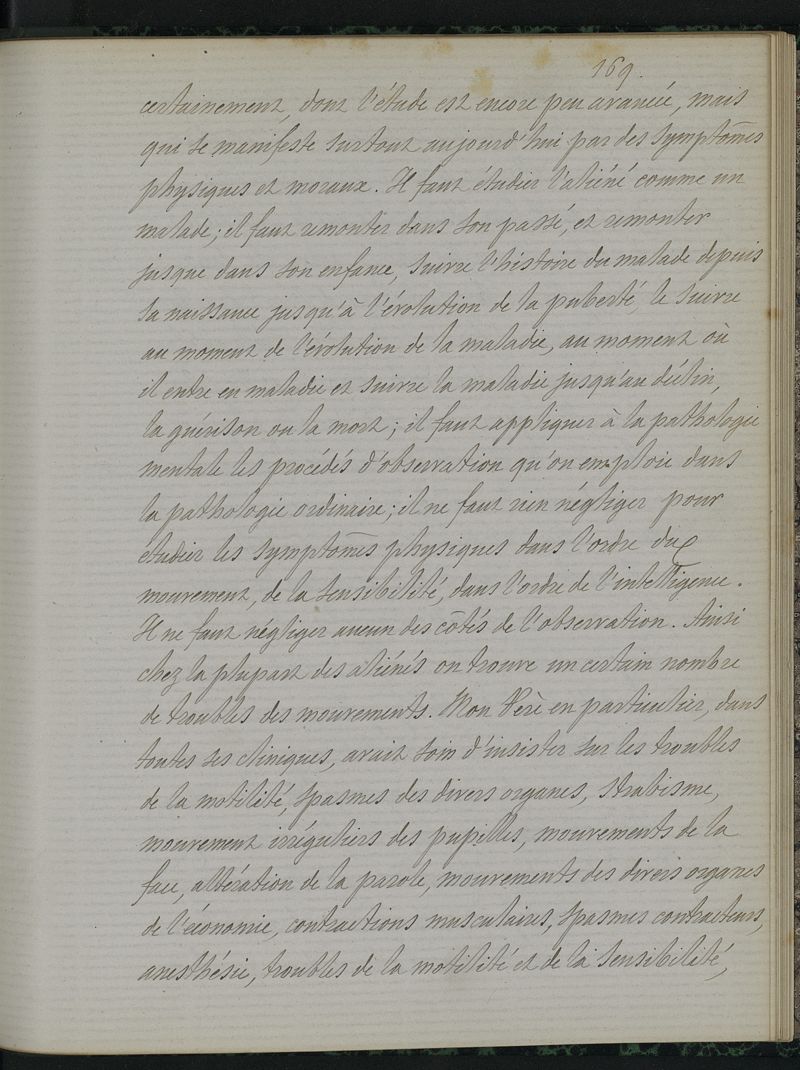 169.
certainement, dont l'étude est encore peu avancée, mais
qui se manifeste surtout aujourd'hui par des symptômes
physiques et moraux. Il faut étudier l'aliéné comme un
malade; il faut remonter dans son passé, et remonter
jusque dans son enfance, suivre l'histoire du malade depuis
sa naissance jusqu'à l'évolution de la puberté, le suivre
au moment de l'évolution de la maladie, au moment où
il entre en maladie et suivre la maladie jusqu'au déclin,
la guérison ou la mort; il faut appliquer à la pathologie
mentale les procédés d'observation qu'on emploie dans
la pathologie ordinaire; il ne faut rien négliger pour
étudier les symptômes physiques dans l'ordre du
mouvement, de la sensibilité, dans l'ordre de l'intelligence.
Il ne faut négliger aucun des côtés de l'observation. Ainsi
chez la plupart des aliénés on trouve un certain nombre
de troubles des mouvements. Mon Père en particulier, dans
toutes ses cliniques, avait soin d'insister sur les troubles
de la motilité, spasmes des divers organes, strabisme,
mouvement irréguliers des pupilles, mouvements de la
face, altération de la parole, mouvements des divers organes
de l'économie, contractions musculaires, spasmes contracteurs,
anesthésie, troubles de la motilité et de la sensibilité,